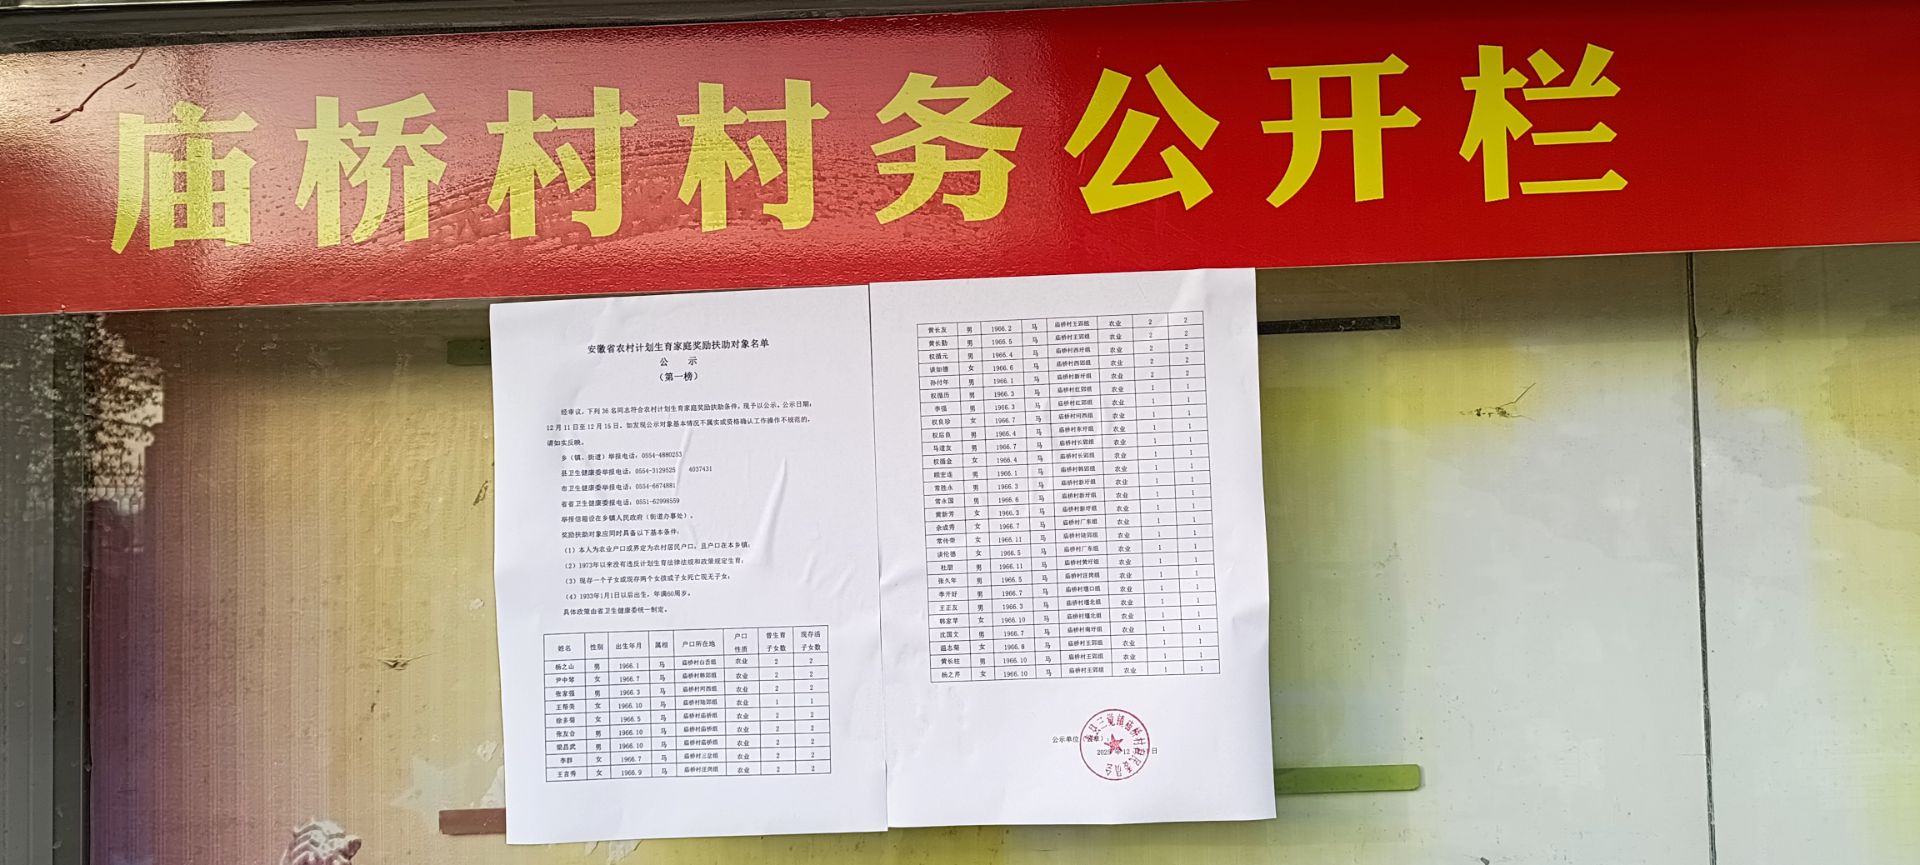 庙桥村村务公开栏
安徽省农村计划生育家庭奖励扶助对象名单
公 示
（第一榜）
经审议，下列36名同志符合农村计划生育家庭奖励扶助条件，现予以公示。公示日期：
12月11日至12月15日。如发现公示对象基本情况不属实或资格确认工作操作不规范的，
请如实反映。
乡（镇、街道）举报电话：0554-4880253
县卫生健康委举报电话：0554-3129525 4037431
市卫生健康委举报电话：0554-6674881
省省卫生健康委举报电话：0551-62998559
举报信箱设在乡镇人民政府（街道办事处）。
奖励扶助对象应同时具备以下基本条件：
（1）本人为农业户口或界定为农村居民户口，且户口在本乡镇；
（2）1973年以来没有违反计划生育法律法规和政策规定生育；
（3）现存一个子女或现存两个女孩或子女死亡现无子女；
（4）1933年1月1日以后出生，年满60周岁。
具体政策由省卫生健康委统一制定。
姓名 性别 出生年月 属相 户口所在地 户口性质 曾生育子女数 现存活子女数
杨之山 男 1966.1 马 庙桥村白舍组 农业 2 2
尹中琴 女 1966.7 马 庙桥村韩郢组 农业 2 2
张家强 男 1966.3 马 庙桥村河西组 农业 2 2
王帮美 女 1966.10 马 庙桥村陆郢组 农业 1 1
徐多菊 女 1966.5 马 庙桥村庙桥组 农业 2 2
张友合 男 1966.10 马 庙桥村庙桥组 农业 2 2
梁昌武 男 1966.10 马 庙桥村庙桥组 农业 2 2
李群 女 1966.7 马 庙桥村三淙组 农业 2 2
王言秀 女 1966.9 马 庙桥村汪岗组 农业 2 2
黄长友 男 1966.2 马 庙桥村王郢组 农业 2 2
黄长勤 男 1966.5 马 庙桥村王郢组 农业 2 2
权循元 男 1966.4 马 庙桥村西圩组 农业 2 2
谈如德 女 1966.6 马 庙桥村西郢组 农业 2 2
孙付年 男 1966.1 马 庙桥村新圩组 农业 2 2
权循历 男 1966.3 马 庙桥村红郢组 农业 1 1
李强 男 1966.3 马 庙桥村红郢组 农业 1 1
权良珍 女 1966.7 马 庙桥村河西组 农业 1 1
权后良 男 1966.4 马 庙桥村东圩组 农业 1 1
马道友 男 1966.7 马 庙桥村长郢组 农业 1 1
权循金 女 1966.4 马 庙桥村长郢组 农业 1 1
顾宏连 男 1966.1 马 庙桥村韩郢组 农业 1 1
常胜永 男 1966.3 马 庙桥村新圩组 农业 1 1
常永国 男 1966.6 马 庙桥村新圩组 农业 1 1
黄新芳 女 1966.3 马 庙桥村新圩组 农业 1 1
余成秀 女 1966.7 马 庙桥村广东组 农业 1 1
常传荣 女 1966.11 马 庙桥村陆郢组 农业 1 1
谈伦德 女 1966.5 马 庙桥村广东组 农业 1 1
杜朋 男 1966.11 马 庙桥村黄圩组 农业 1 1
张久年 男 1966.5 马 庙桥村汪岗组 农业 1 1
李开好 男 1966.7 马 庙桥村堰口组 农业 1 1
王正友 男 1966.3 马 庙桥村堰北组 农业 1 1
韩家苹 女 1966.10 马 庙桥村堰北组 农业 1 1
沈国文 男 1966.7 马 庙桥村南圩组 农业 1 1
温志菊 女 1966.8 马 庙桥村王郢组 农业 1 1
黄长柱 男 1966.10 马 庙桥村王郢组 农业 1 1
杨之芹 女 1966.10 马 庙桥村王郢组 农业 1 1
公示单位（盖章）：
三觉镇庙桥村民委员会